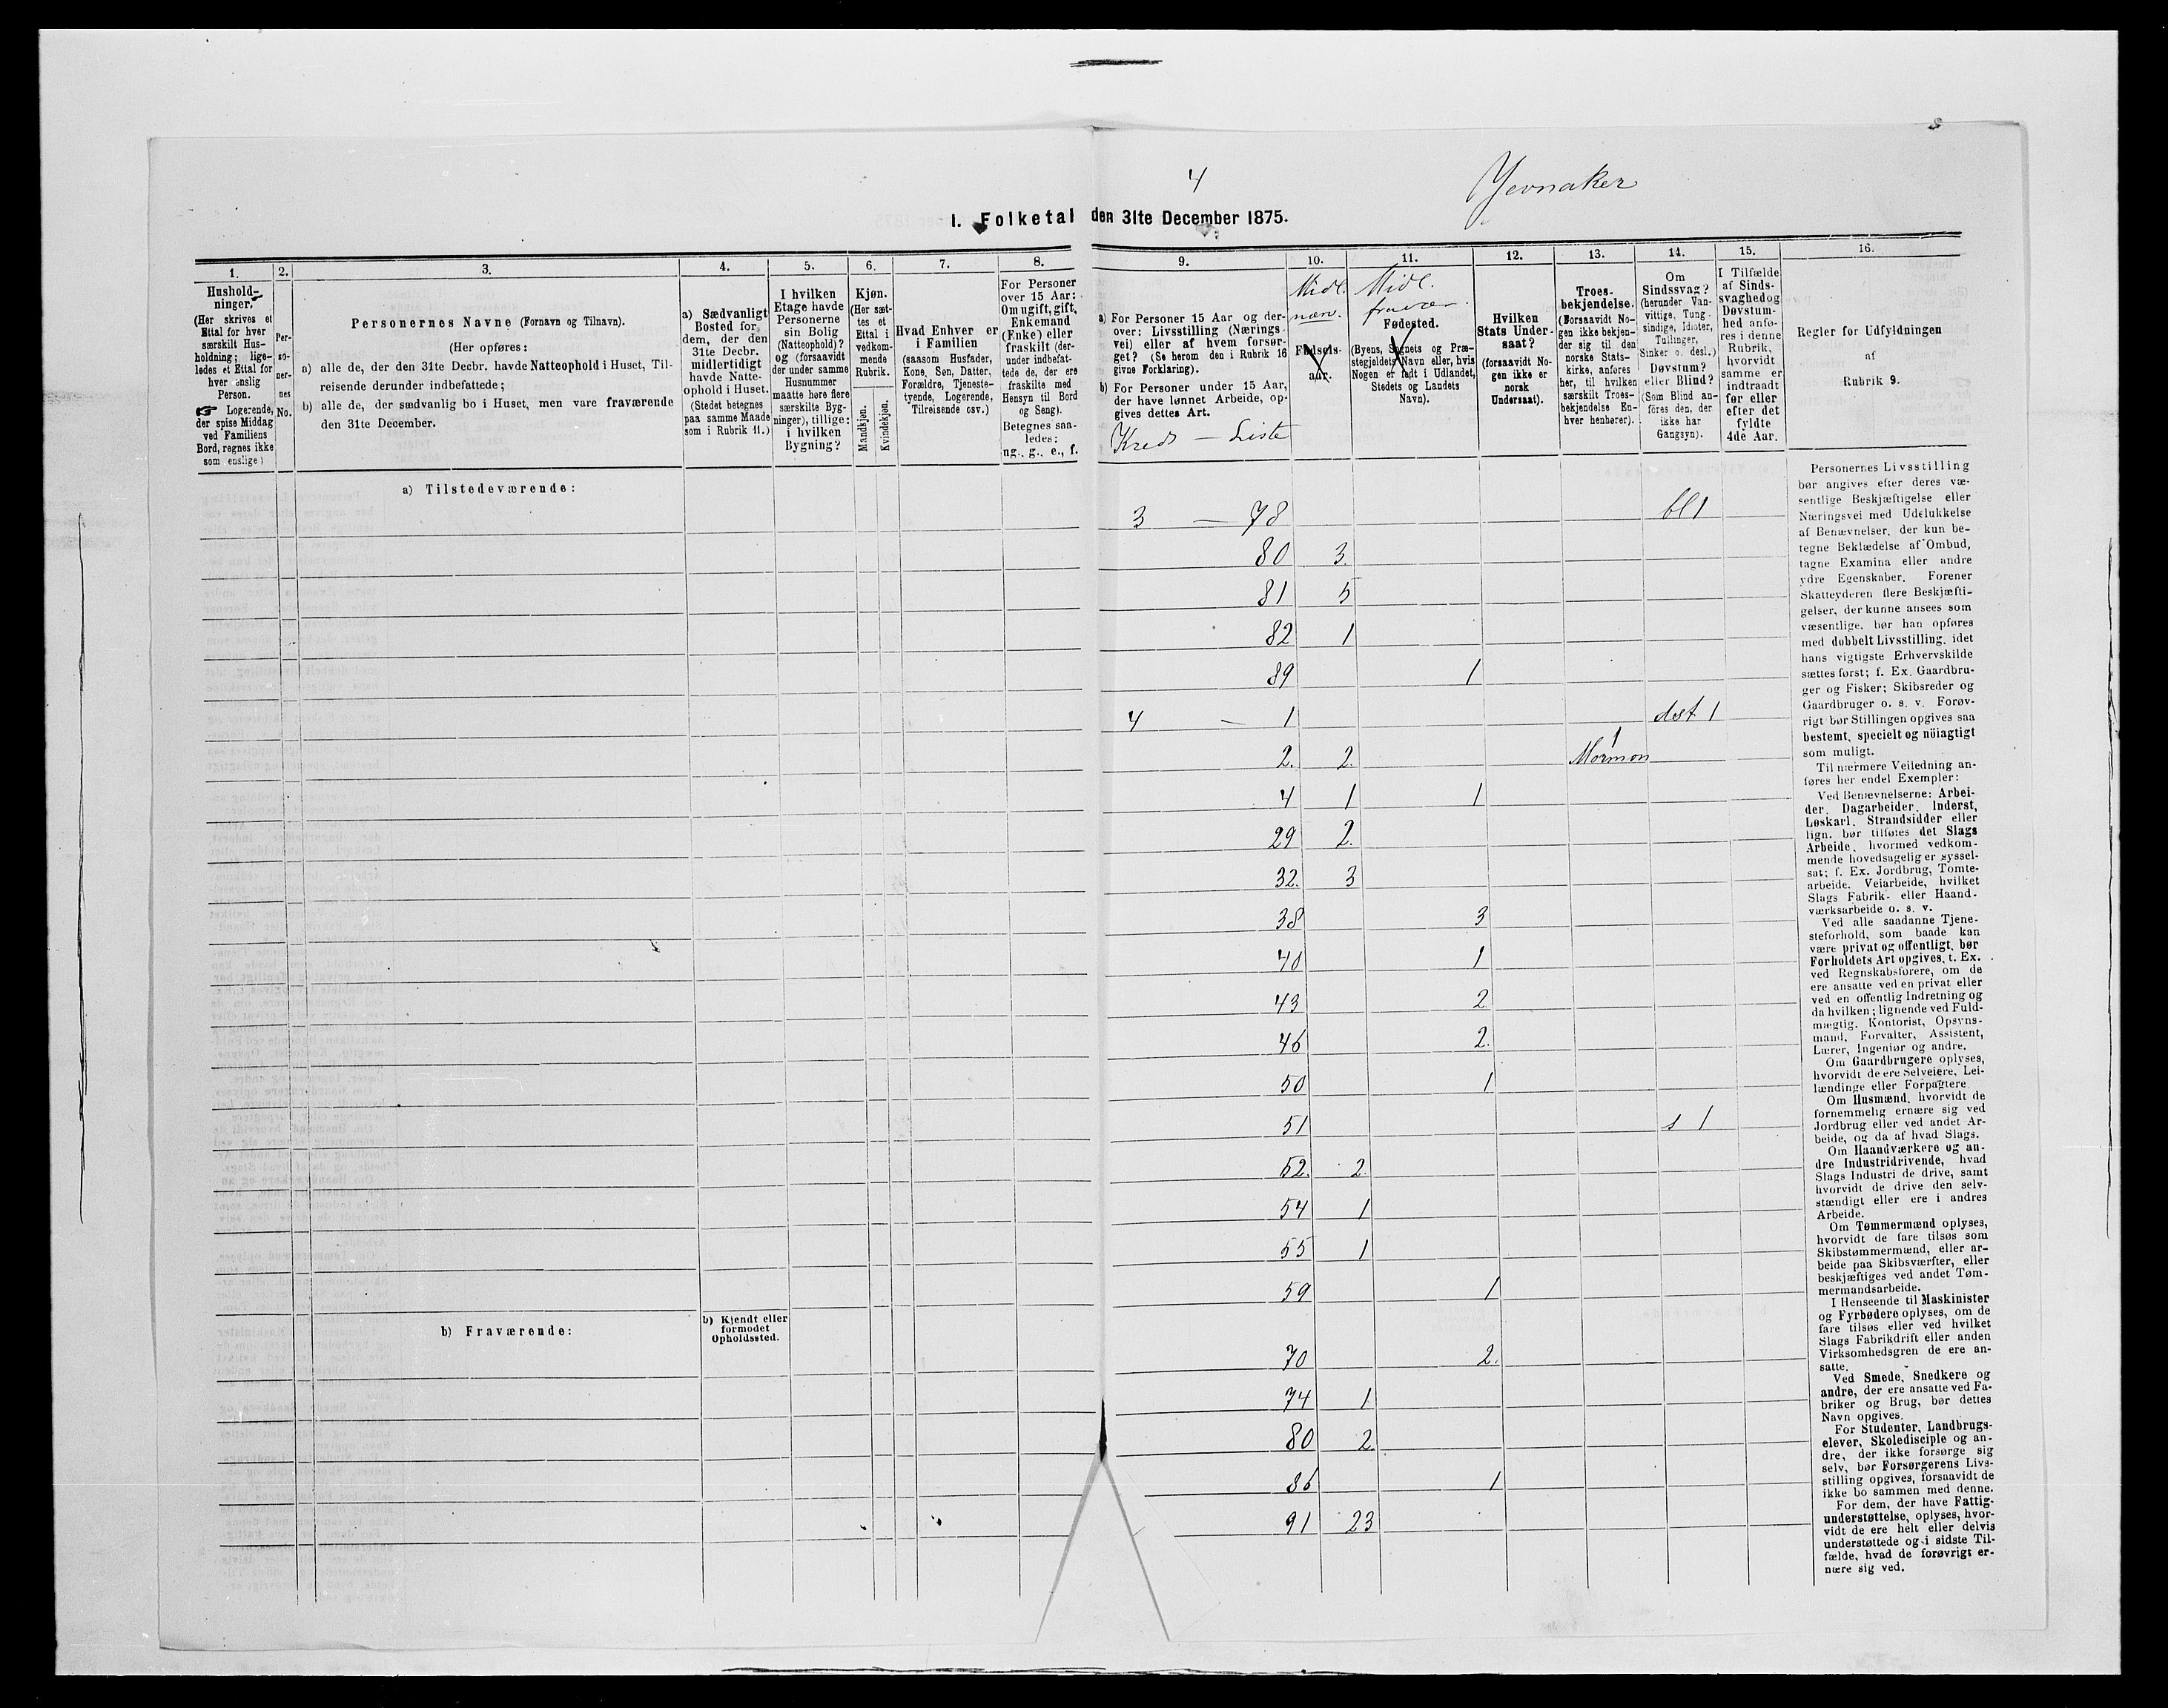 4
Jevnaker
I. Folketal den 31te December 1875.
1.
Hushold-
ninger.
(Her skrives et
Ettal for hver
særskilt Hus-
holdning; lige-
ledes et Ettal for
hver enslig
Person.
☞ Logerende,
der spise Middag
ved Familiens
Bord, regnes ikke
som enslige)
2.
Per-
so-
ner-
nes
No.
3.
Personernes Navne (Fornavn og Tilnavn).
(Her opføres:
a) alle de, der den 31te Decbr. havde Natteophold i Huset, Til-
reisende derunder indbefattede;
b) alle de, der sædvanlig bo i Huset, men vare fraværende
den 31te December.
4.
a) Sædvanligt
Bosted for
dem, der den
31te Decbr.
midlertidigt
havde Natte-
ophold i Huset.
(Stedet betegnes
paa samme Maade
som i Rubrik 11.)
5.
I hvilken
Etage havde
Personerne
sin Bolig
(Natteophold)?
og (forsaavidt
der under samme
Husnummer
maatte høre flere
særskilte Byg-
ninger), tillige:
i hvilken
Bygning?
6.
Kjøn.
(Her sæt-
tes et
Ettal i
vedkom-
mende
Rubrik.
Mandkjøn.
Kvindekjøn.
7.
Hvad Enhver er
i Familien
(saasom Husfader,
Kone, Søn, Datter,
Forældre, Tjeneste-
tyende, Logerende,
Tilreisende osv.)
8.
For Personer
over 15 Aar:
Om ugift, gift,
Enkemand
(Enke) eller
fraskilt (der-
under indbefat-
tede de, der ere
fraskilte med
Hensyn til Bord
og Seng).
Betegnes saa-
ledes:
ug., g., e., f.
9.
a) For Personer 15 Aar og der-
over: Livsstilling (Nærings-
vei) eller af hvem forsør-
get? (Se herom den i Rubrik 16
givne Forklaring).
b) For Personer under 15 Aar,
der have lønnet Arbeide, op-
gives dettes Art.
Kreds — Liste
10.
Midl.
nærv.
Fødsels-
aar.
11.
Midl.
fravær.
Fødested.
(Byens, Sognets og Præ-
stegjeldets Navn eller, hvis
Nogen er født i Udlandet,
Stedets og Landets
Navn).
12.
Hvilken
Stats Under-
saat?
(forsaavidt No-
gen ikke er
norsk
Undersaat).
13.
Troes-
bekjendelse.
(Forsaavidt No-
gen ikke bekjen-
der sig til den
norske Stats-
kirke, anføres
her, til hvilken
særskilt Troes-
bekjendelse En-
hver henhører).
14.
Om
Sindssvag?
(herunder Van-
vittige, Tung-
sindige, Idioter,
Tullinger,
Sinker o. desl.)
Døvstum?
eller Blind?
(Som Blind an-
føres den, der
ikke har
Gangsyn).
15.
I Tilfælde
af Sinds-
svaghed og
Døvstum-
hed anfø-
res i denne
Rubrik,
hvorvidt
samme er
indtraadt
før eller
efter det
fyldte
4de Aar.
16.
Regler for Udfyldningen
af
Rubrik 9.
a) Tilstedeværende:
3 — 78 bl 1
80 3.
81 5
82 1
89 1
4 — 1 dst 1
2. 2. Mormon 1
4 1 1
29 2.
32. 3
38 3
40 1
43 2
46 2.
50 1
51 s 1
52. 2.
54 1
55 1
59 1
b) Fraværende:
b) Kjendt eller
formodet
Opholdssted.
70 2.
74 1
80 2
86 1
91 23
Personernes Livsstilling
bør angives efter deres væ-
sentlige Beskjæftigelse eller
Næringsvei med Udelukkelse
af Benævnelser, der kun be-
tegne Beklædelse af Ombud,
tagne Examina eller andre
ydre Egenskaber. Forener
Skatteyderen flere Beskjæfti-
gelser, der kunne ansees som
væsentlige, bør han opføres
med dobbelt Livsstilling, idet
hans vigtigste Erhvervskilde
sættes først; f. Ex. Gaardbru-
ger og Fisker; Skibsreder og
Gaardbruger o. s. v. Forøv-
rigt bør Stillingen opgives saa
bestemt, specielt og nöiagtigt
som muligt.
Til nærmere Veiledning an-
føres her endel Exempler:
Ved Benævnelserne: Arbei-
der, Dagarbeider, Inderst,
Løskarl, Strandsidder eller
lign. bør tilføies det Slags
Arbeide, hvormed vedkom-
mende hovedsagelig er syssel-
sat; f. Ex. Jordbrug, Tomte-
arbeide, Veiarbeide, hvilket
Slags Fabrik- eller Haand-
værksarbeide o. s. v.
Ved alle saadanne Tjene-
steforhold, som baade kan
være privat og offentligt, bør
Forholdets Art opgives, t. Ex.
ved Regnskabsførere, om de
ere ansatte ved en privat eller
ved en offentlig Indretning og
da hvilken; lignende ved Fuld-
mægtig, Kontorist, Opsyns-
mand, Forvalter, Assistent,
Lærer, Ingeniør og andre.
Om Gaardbrugere oplyses,
hvorvidt de ere Selveiere, Lei-
lændinge eller Forpagtere.
Om Husmænd, hvorvidt de
fornemmelig ernære sig ved
Jordbrug eller ved andet Ar-
beide, og da af hvad Slags.
Om Haandværkere og an-
dre Industridrivende, hvad
Slags Industri de drive, samt
hvorvidt de drive den selv-
stændigt eller ere i andres
Arbeide.
Om Tømmermænd oplyses,
hvorvidt de fare tilsøs som
Skibstømmermænd, eller ar-
beide paa Skibsværfter, eller
beskjæftiges ved andet Tøm-
mermandsarbeide.
I Henseende til Maskinister
og Fyrbødere oplyses, om de
fare tilsøs eller ved hvilket
Slags Fabrikdrift eller anden
Virksomhedsgren de ere an-
satte.
Ved Smede, Snedkere og
andre, der ere ansatte ved Fa-
briker og Brug, bør dettes
Navn opgives.
For Studenter, Landbrugs-
elever, Skoledisciple og an-
dre, der ikke forsørge sig
selv, bør Forsørgerens Livs-
stilling opgives, forsaavidt de
ikke bo sammen med denne.
For dem, der have Fattig-
understøttelse, oplyses, hvor-
vidt de ere helt eller delvis
understøttede og i sidste Til-
fælde, hvad de forøvrigt er-
nære sig ved.